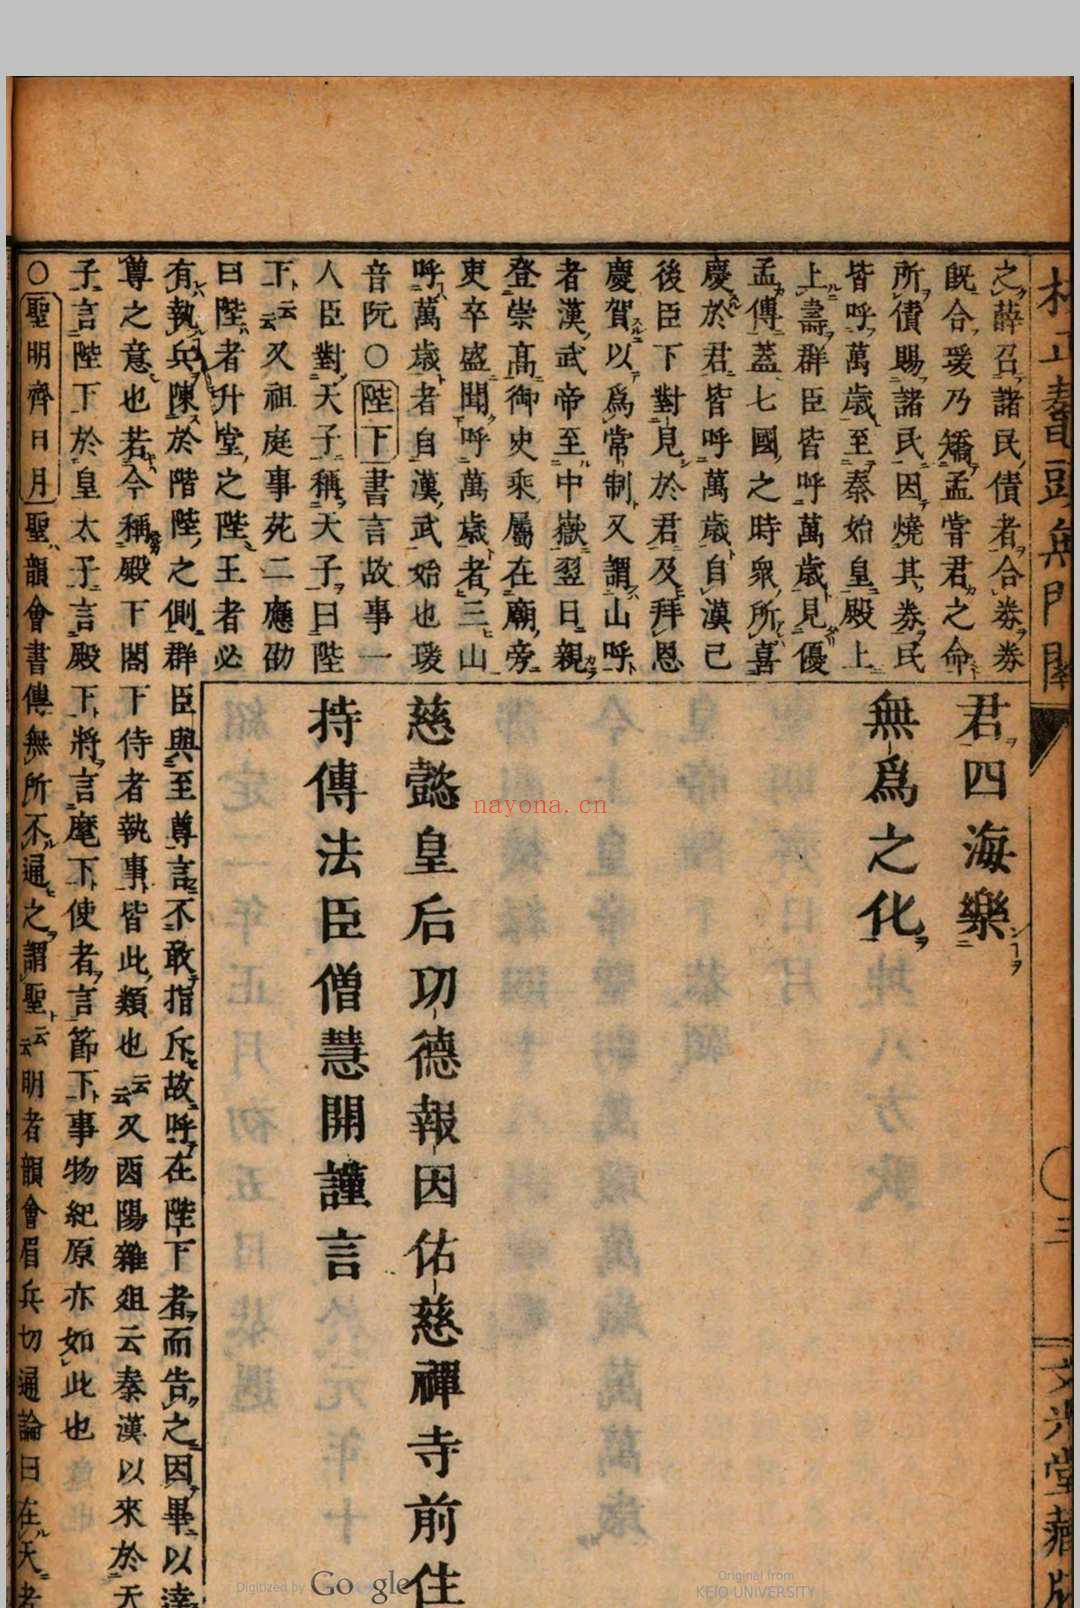 校正鼇頭無門關
三
文光堂藏版
之薛召諸民債者合券券
既合瑗乃矯孟嘗君之命
所債賜諸民因燒其券民
皆呼萬歲至秦始皇殿上
上壽群臣皆呼萬歲見優
孟傳蓋七國之時衆所喜
慶於君皆呼萬歲自漢已
後臣下對見於君及拜恩
慶賀以爲常制又謂山呼
者漢武帝至中嶽翌日親
登崇高御史乘屬在廟旁
吏卒盛聞呼萬歲者三山
呼萬歲者自漢武始也瑗
音阮○陛下書言故事一
人臣對天子稱天子曰陛
下云云又祖庭事苑二應劭
曰陛者升堂之陛王者必
有執兵陳於階陛之側群臣與至尊言不敢指斥故呼在陛下者而告之因畢以達
尊之意也若今稱殿下閣下侍者執事皆此類也云云又酉陽雜俎云秦漢以來於天
子言陛下於皇太子言殿下將言麾下使者言節下事物紀原亦如此也
○聖明齊日月聖韻會書傳無所不通之謂聖云云明者韻會眉兵切通論曰在天者
君四海樂
無爲之化
慈懿皇后功德報因佑慈禪寺前住
持傳法臣僧慧開謹言
nayona.cn
Digitized by Google
Original from
KEIO UNIVERSITY